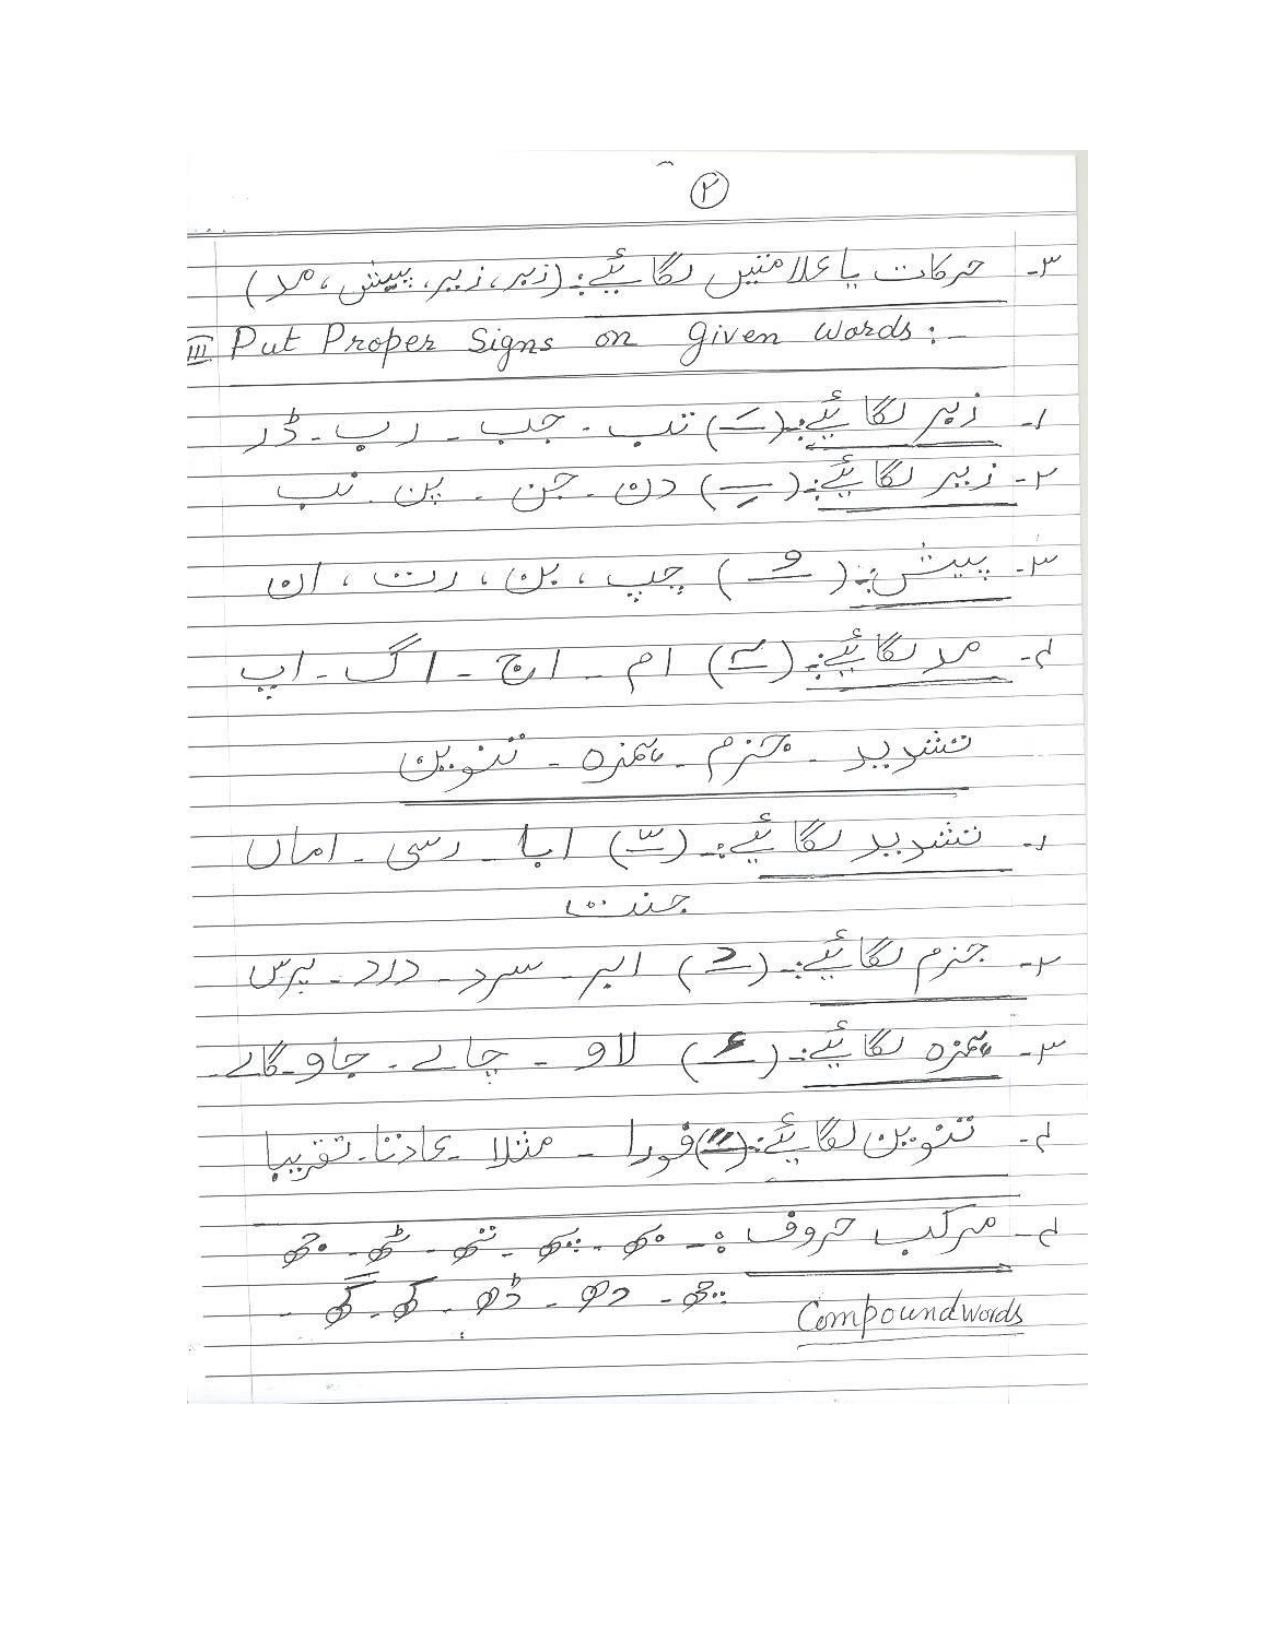 ۲
۳- حرکات یا علامتیں لگائیے:(زبر، زیر، پیش، مد)
III Put Proper Signs on given words:-
۱- زبر لگائیے:-(َ) تب - جب - رب - ڈر
۲- زیر لگائیے:-(ِ) دن - جن - پن - نب
۳- پیش:-(ُ) چپ ، بن ، رت ، ان
۴- مد لگائیے:-(ٓ) ام - اج - اگ - اپ
تشدید - جزم - ہمزہ - تنوین
۱- تشدید لگائیے:-(ّ) ابا - رسی - اماں
جنت
۲- جزم لگائیے:-(ْ) ابر - سرد - درد - برس
۳- ہمزہ لگائیے:-(ء) لاو - چاے - جاو - گاے -
۴- تنوین لگائیے:-(ً) فورا - مثلا - عادتا - تقریبا
۴- مرکب حروف :- بھ - پھ - تھ - ٹھ - جھ
چھ - دھ - ڈھ - کھ - گھ -
Compoundwords